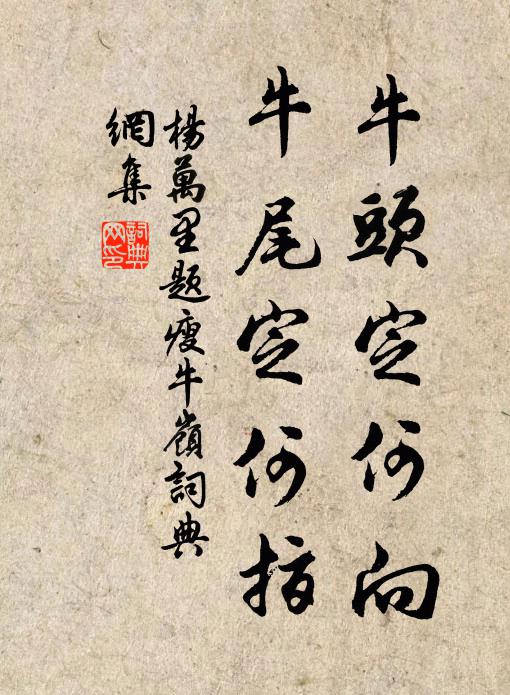 牛頭定何向
牛尾定何指
楊萬里題瘦牛嶺詞典
網集
詞典
网印